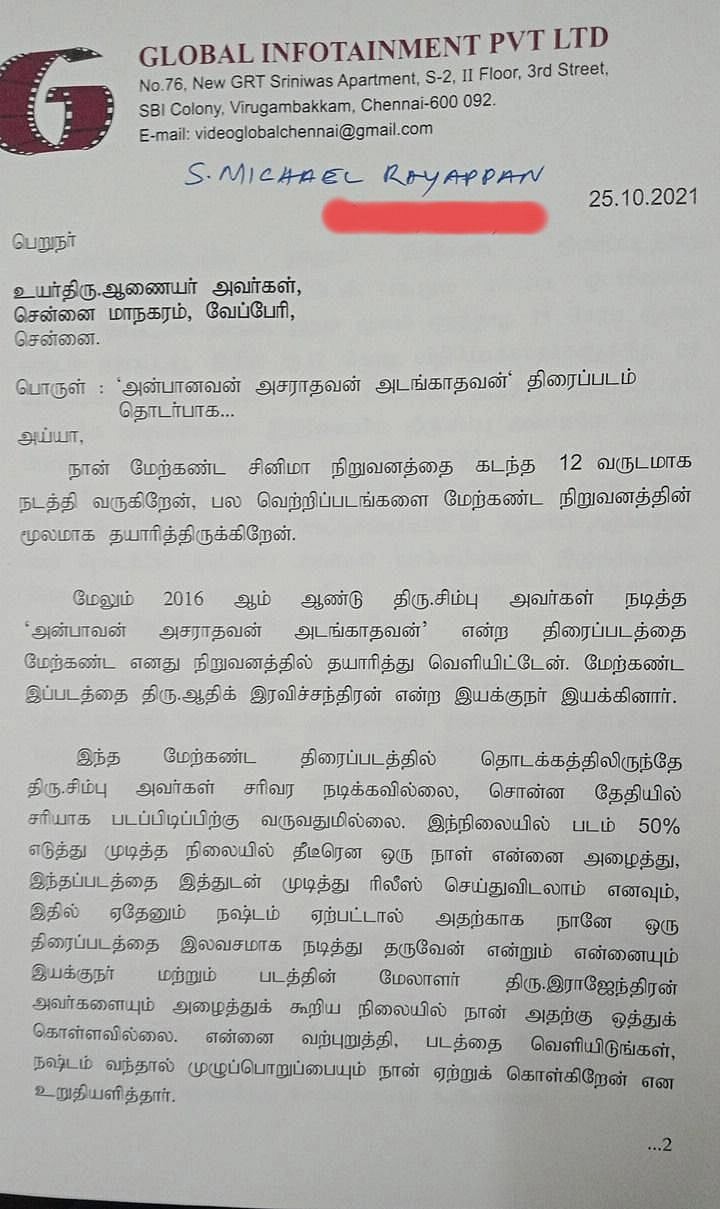 GLOBAL INFOTAINMENT PVT LTD
No.76, New GRT Sriniwas Apartment, S-2, II Floor, 3rd Street,
SBI Colony, Virugambakkam, Chennai-600 092.
E-mail: videoglobalchennai@gmail.com
S. MICHAEL RAYAPPAN
25.10.2021
பெறுநர்
உயர்திரு.ஆணையர் அவர்கள்,
சென்னை மாநகரம், வேப்பேரி,
சென்னை.
பொருள் : ‘அன்பானவன் அசராதவன் அடங்காதவன்‘ திரைப்படம்
தொடர்பாக...
அய்யா,
நான் மேற்கண்ட சினிமா நிறுவனத்தை கடந்த 12 வருடமாக
நடத்தி வருகிறேன், பல வெற்றிப்படங்களை மேற்கண்ட நிறுவனத்தின்
மூலமாக தயாரித்திருக்கிறேன்.
மேலும் 2016 ஆம் ஆண்டு திரு.சிம்பு அவர்கள் நடித்த
‘அன்பாவன் அசராதவன் அடங்காதவன்’ என்ற திரைப்படத்தை
மேற்கண்ட எனது நிறுவனத்தில் தயாரித்து வெளியிட்டேன். மேற்கண்ட
இப்படத்தை திரு.ஆதிக் இரவிச்சந்திரன் என்ற இயக்குநர் இயக்கினார்.
இந்த மேற்கண்ட திரைப்படத்தில் தொடக்கத்திலிருந்தே
திரு.சிம்பு அவர்கள் சரிவர நடிக்கவில்லை, சொன்ன தேதியில்
சரியாக படப்பிடிப்பிற்கு வருவதுமில்லை. இந்நிலையில் படம் 50%
எடுத்து முடித்த நிலையில் தீடீரென ஒரு நாள் என்னை அழைத்து,
இந்தப்படத்தை இத்துடன் முடித்து ரிலீஸ் செய்துவிடலாம் எனவும்,
இதில் ஏதேனும் நஷ்டம் ஏற்பட்டால் அதற்காக நானே ஒரு
திரைப்படத்தை இலவசமாக நடித்து தருவேன் என்றும் என்னையும்
இயக்குநர் மற்றும் படத்தின் மேலாளர் திரு.இராஜேந்திரன்
அவர்களையும் அழைத்துக் கூறிய நிலையில் நான் அதற்கு ஒத்துக்
கொள்ளவில்லை. என்னை வற்புறுத்தி, படத்தை வெளியிடுங்கள்,
நஷ்டம் வந்தால் முழுப்பொறுப்பையும் நான் ஏற்றுக் கொள்கிறேன் என
உறுதியளித்தார்.
...2